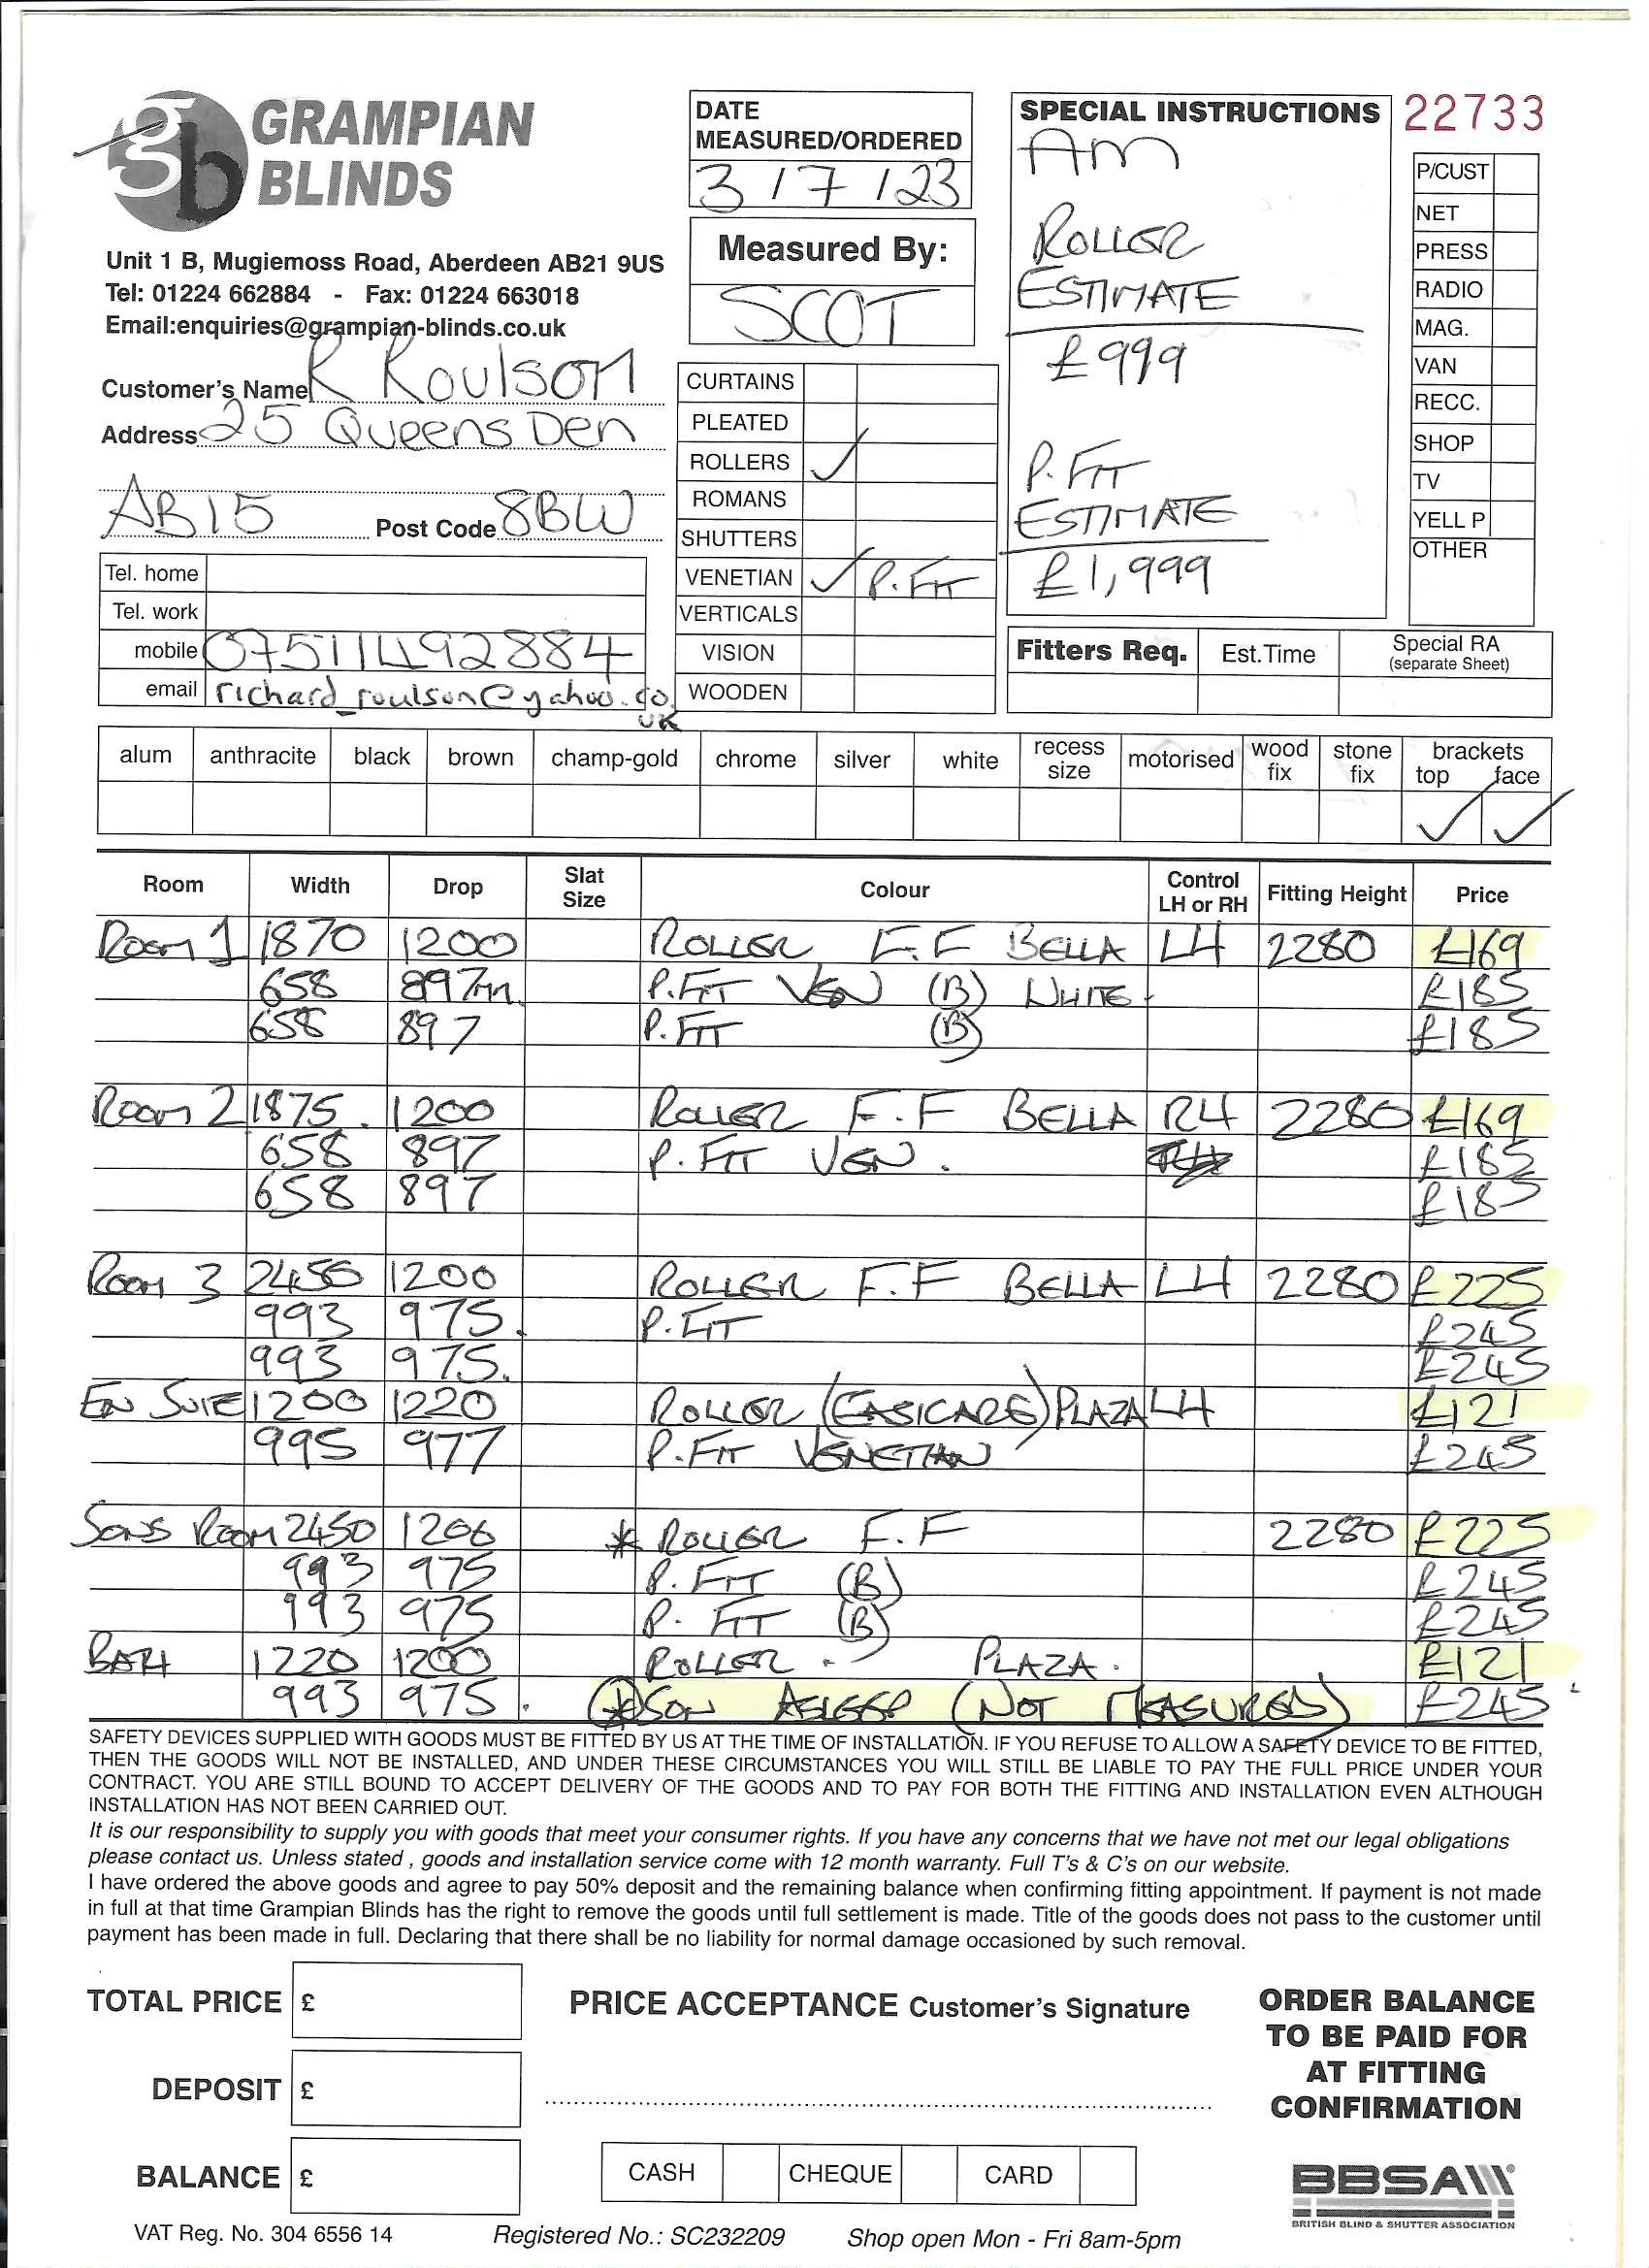 gb GRAMPIAN BLINDS
Unit 1 B, Mugiemoss Road, Aberdeen AB21 9US
Tel: 01224 662884 - Fax: 01224 663018
Email:enquiries@grampian-blinds.co.uk
Customer's Name R Roulson
Address 25 Queens Den
AB15 Post Code 8BW
Tel. home
Tel. work
mobile 07511492884
email richard_roulson@yahoo.co.uk
DATE MEASURED/ORDERED
3/7/23
Measured By:
SCOT
CURTAINS
PLEATED
ROLLERS ✓
ROMANS
SHUTTERS
VENETIAN ✓ P. FIT
VERTICALS
VISION
WOODEN
SPECIAL INSTRUCTIONS
AM
ROLLER
ESTIMATE
£999
P. FIT
ESTIMATE
£1,999
22733
P/CUST
NET
PRESS
RADIO
MAG.
VAN
RECC.
SHOP
TV
YELL P
OTHER
Fitters Req. Est.Time Special RA (separate Sheet)
alum anthracite black brown champ-gold chrome silver white recess size motorised wood fix stone fix brackets top face
✓ ✓
Room Width Drop Slat Size Colour Control LH or RH Fitting Height Price
ROOM 1 1870 1200 ROLLER F.F BELLA LH 2280 £169
658 897mm. P.FIT VEN (B) WHITE £185
658 897 P.FIT (B) £185
ROOM 2 1875. 1200 ROLLER F.F BELLA RH 2280 £169
658 897 P. FIT VEN. £185
658 897 £185
ROOM 3 2450 1200 ROLLER F.F BELLA LH 2280 £225
993 975. P.FIT £245
993 975. £245
EN SUTE 1200 1220 ROLLER (EASICARE) PLAZA LH £121
995 977 P.FIT VENETIAN £245
SONS ROOM 2450 1200 * ROLLER F.F 2280 £225
993 975 P. FIT (B) £245
993 975 P. FIT (B) £245
BATH 1220 1200 ROLLER. PLAZA. £121
993 975. * SON ASLEEP (NOT MEASURED) £245
SAFETY DEVICES SUPPLIED WITH GOODS MUST BE FITTED BY US AT THE TIME OF INSTALLATION. IF YOU REFUSE TO ALLOW A SAFETY DEVICE TO BE FITTED,
THEN THE GOODS WILL NOT BE INSTALLED, AND UNDER THESE CIRCUMSTANCES YOU WILL STILL BE LIABLE TO PAY THE FULL PRICE UNDER YOUR
CONTRACT. YOU ARE STILL BOUND TO ACCEPT DELIVERY OF THE GOODS AND TO PAY FOR BOTH THE FITTING AND INSTALLATION EVEN ALTHOUGH
INSTALLATION HAS NOT BEEN CARRIED OUT.
It is our responsibility to supply you with goods that meet your consumer rights. If you have any concerns that we have not met our legal obligations
please contact us. Unless stated , goods and installation service come with 12 month warranty. Full T's & C's on our website.
I have ordered the above goods and agree to pay 50% deposit and the remaining balance when confirming fitting appointment. If payment is not made
in full at that time Grampian Blinds has the right to remove the goods until full settlement is made. Title of the goods does not pass to the customer until
payment has been made in full. Declaring that there shall be no liability for normal damage occasioned by such removal.
TOTAL PRICE £
DEPOSIT £
BALANCE £
PRICE ACCEPTANCE Customer's Signature
CASH CHEQUE CARD
ORDER BALANCE
TO BE PAID FOR
AT FITTING
CONFIRMATION
BBSA
BRITISH BLIND & SHUTTER ASSOCIATION
VAT Reg. No. 304 6556 14 Registered No.: SC232209 Shop open Mon - Fri 8am-5pm